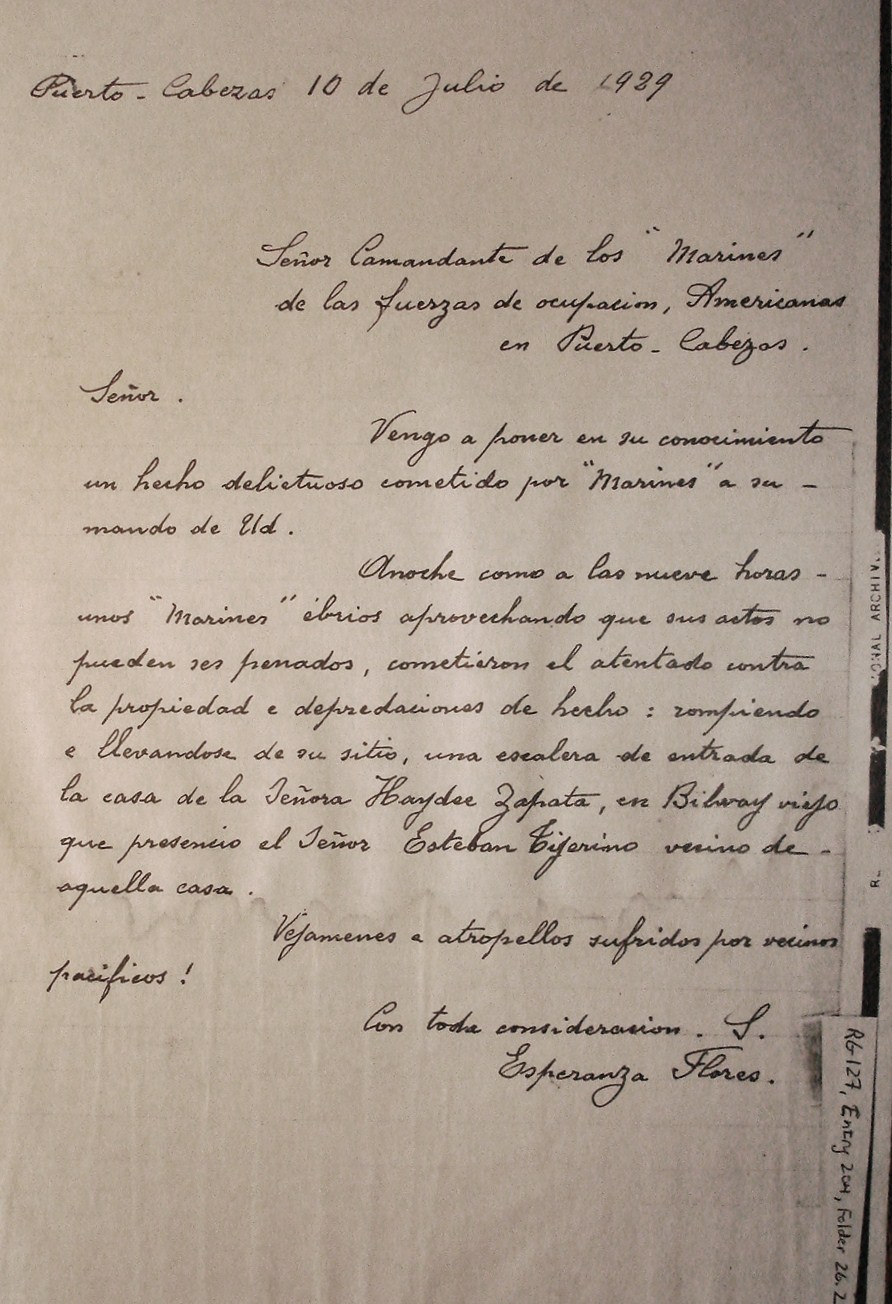 Puerto - Cabezas 10 de Julio de 1929
Señor Comandante de los "Marines"
de las fuerzas de ocupacion, Americanas
en Puerto - Cabezas.
Señor.
Vengo a poner en su conocimiento
un hecho delictuoso cometido por "Marines" a su -
mando de Ud.
Anoche como a las nueve horas -
unos "Marines" ébrios aprovechando que sus actos no
pueden ser penados, cometieron el atentado contra
la propiedad e depredaciones de hecho: rompiendo
e llevandose de su sitio, una escalera de entrada de
la casa de la Señora Haydee Zapata, en Bilway viejo
que presencio el Señor Esteban Tijerino vecino de -
aquella casa.
Vejamenes e atropellos sufridos por vecinos
pacificos!
Con toda consideracion. S.
Esperanza Flores.
ONAL ARCHIV
R
RG 127, Entry 204, Folder 26.2